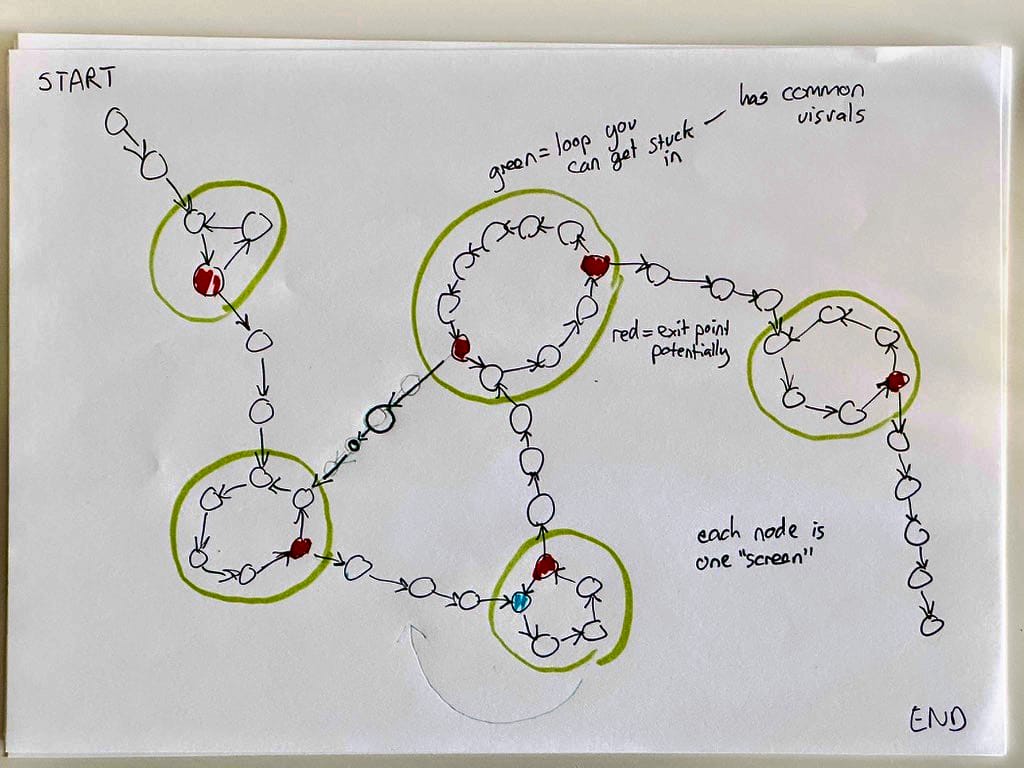 START
has common
visvals
green = loop you
can get stuck —
in
red = exit point
potentially
each node is
one "screen"
END